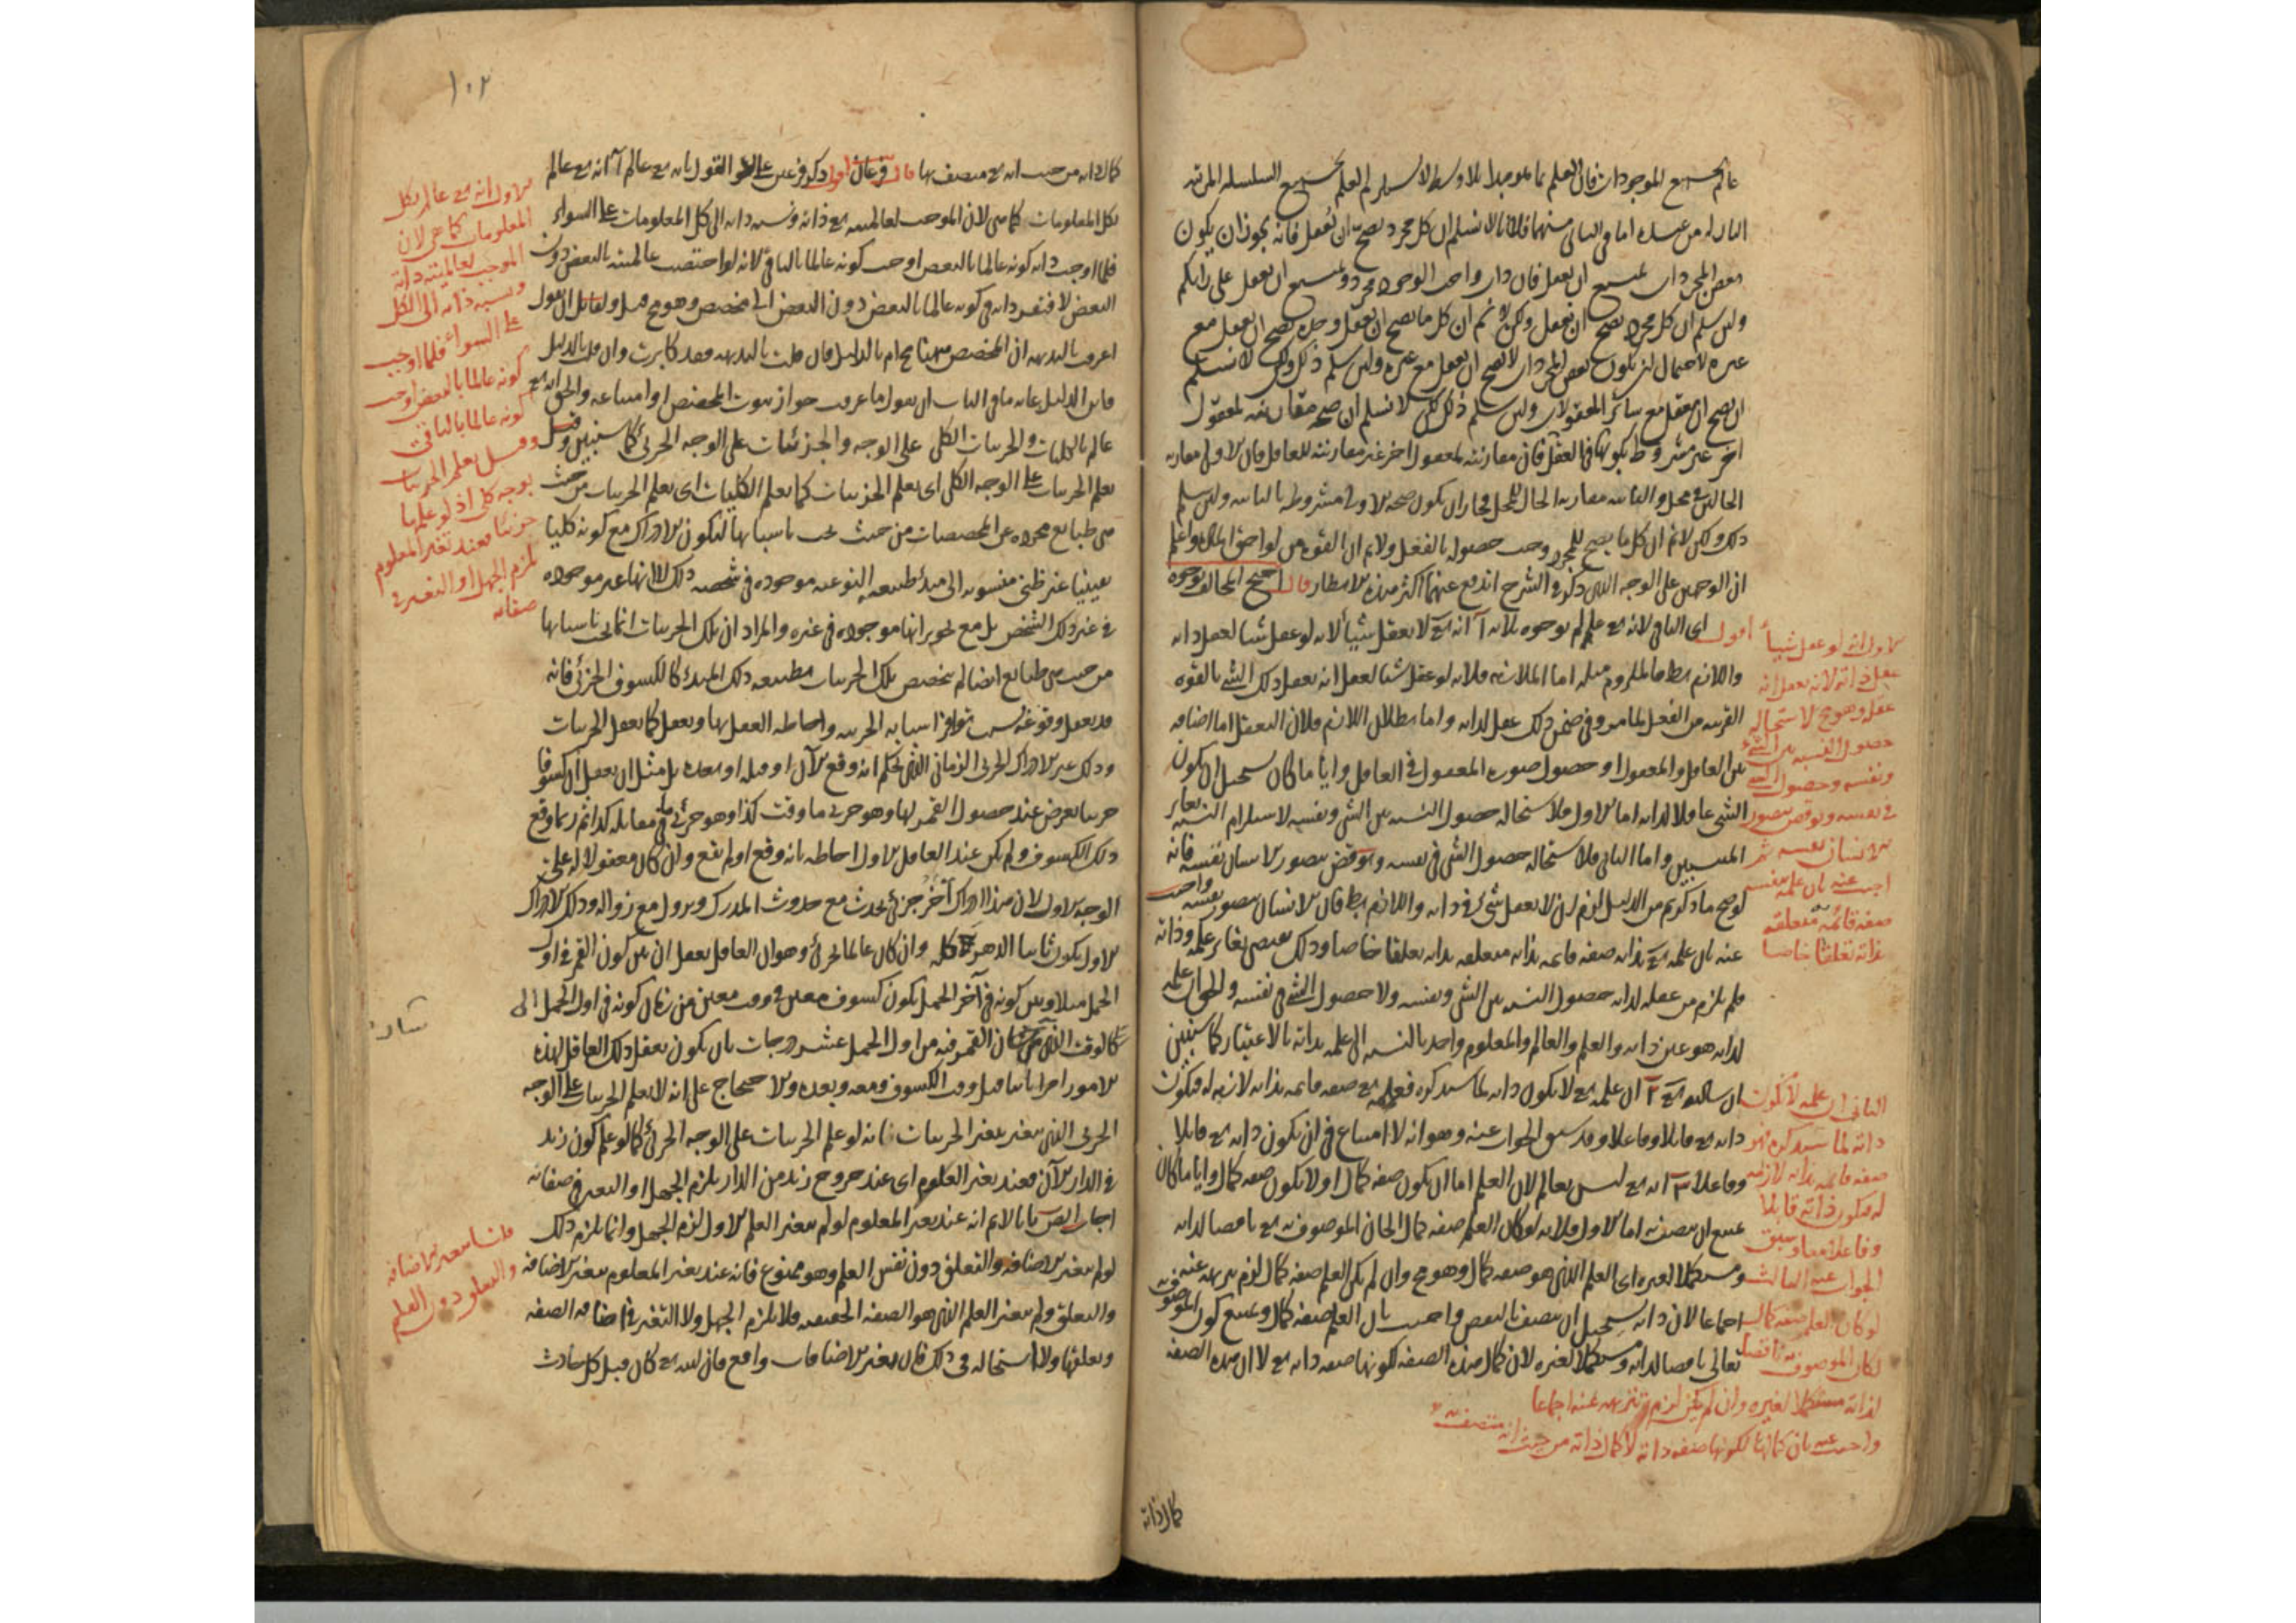 عالم بجميع الموجودات فان العلم بما هو مبدأ بلا وسط لا يستلزم العلم بجميع السلسلة المرتبة
النازلة من عنده اما في الثاني منهما فلانا لا نسلم ان كل مجرد يصح ان يعقل فانه يجوز ان يكون
بعض المجردات يمتنع ان يعقل فان ذات واجب الوجود مجرد ويمتنع ان يعقل على رايكم
ولئن سلم ان كل مجرد يصح ان يعقل ولكن لا نم ان كل ما يصح ان يعقل وحده يصح ان يعقل مع
غيره لاحتمال ان يكون بعض المجردات لا يصح ان يعقل مع غيره ولئن سلم ذلك ولكن لا نسلم
ان يصح ان يعقل مع سائر المعقولات ولئن سلم ذلك لكن لا نسلم ان صحة مقارنته لمعقول
اخر غير مشروط بكونها في العقل فان مقارنته لمعقول اخر غير مقارنته للعاقل فان الاولى مقارنة
الحالين في محل والثانية مقارنة الحال للمحل فجاز ان يكون صحة الاولى مشروطة بالثانية ولئن سلم
ذلك ولكن لا نم ان كل ما يصح للمجرد وجب حصوله بالفعل ولا نم ان القوة من لواحق المادة واعلم
ان الوجهين على الوجه الذي ذكر في الشرح اندفع عنهما اكثر هذه الانظار قال احتج المخالف بوجوه
اقول اي النافي لانه تع عالم بوجوه ثلاثة آ انه تع لا يعقل شيأ لانه لو عقل شيا لعقل ذاته
واللازم بط فالملزوم مثله اما الملازمة فلانه لو عقل شيا لعقل انه يعقل ذلك الشي بالقوة
القريبة من الفعل لما مر وفي ضمن ذلك عقل لذاته واما بطلان اللازم فلان التعقل اما اضافة
بين العاقل والمعقول او حصول صورة المعقول في العاقل وايا ما كان يستحيل ان يكون
الشي عاقلا لذاته اما الاول فلاستحالة حصول النسبة بين الشي ونفسه لاستلزام النسبة تغاير
المنتسبين واما الثاني فلاستحالة حصول الشي في نفسه ونوقض بتصور الانسان نفسه فانه
لو صح ما ذكرتم من الدليل لزم ان لا يعقل شي ذاته واللازم بط فان الانسان يتصور نفسه واجيب
عنه بان علمه تع بذاته صفة قائمة بذاته متعلقة بذاته تعلقا خاصا وذلك يقتضي تغاير علمه وذاته
فلم يلزم من عقله لذاته حصول النسبة بين الشي ونفسه ولا حصول الشي في نفسه والحق ان علمه
لذاته هو عين ذاته والعلم والعالم والمعلوم واحد بالنسبة الى علمه بذاته بالاعتبار كما سنبين
ب ان علمه تع لا يكون ذاته لما سنذكره فعلمه تع صفة قائمة بذاته لازمة له فتكون
ذاته تع قابلا وفاعلا وقد سبق الجواب عنه وهو انه لا امتناع في ان يكون ذاته تع قابلا
وفاعلا ج انه تع ليس بعالم لان العلم اما ان يكون صفة كمال او لا يكون صفة كمال وايا ما كان
يمتنع ان يتصف به اما الاول فلانه لو كان العلم صفة كمال لكان الموصوف به تع ناقصا لذاته
ومستكملا لغيره اي العلم الذي هو صفة كمال وهو مح وان لم يكن العلم صفة كمال لزم تنزيهه عنه
اجماعا لان ذاته يستحيل ان يتصف بالنقص واجيب بان العلم صفة كمال ويمتنع كون الموصوف به
تعالى ناقصا لذاته ومستكملا لغيره لان كمال هذه الصفة لكونها صفة ذاته تع لا ان هذه الصفة
الاول انه لو عقل شيأ
عقل ذاته لانه يعقل انه
عقله وهو مح لاستحالة
حصول النسبة بين الشي
ونفسه وحصول الشي
في نفسه ونوقض بتصور
الانسان نفسه ثم
اجيب عنه بان علمه بنفسه
صفة قائمة به متعلقة
بذاته تعلقا خاصا
الثاني ان علمه لا يكون
ذاته لما سنذكره فهو
صفة قائمة بذاته لازمة
له فتكون ذاته قابلا
وفاعلا معا وسبق
الجواب عنه الثالث
لو كان العلم صفة كمال
لكان الموصوف به ناقصا
لذاته مستكملا لغيره وان لم يكن لزم تنزيهه عنه اجماعا
واجيب عنه بان كمالها لكونها صفة ذاته لا كمال ذاته من حيث انه متصف بها
كمال ذاته
١٠٢
كمال ذاته من حيث انه تع متصف بها قال فرعان اقول ذكر فرعين على القول بانه تع عالم آ انه تع عالم
بكل المعلومات كما هي لان الموجب لعالميته تع ذاته ونسبة ذاته الى كل المعلومات على السواء
فلما اوجبت ذاته كونه عالما بالبعض اوجب كونه عالما بالباقي لانه لو اختصت عالميته بالبعض دون
البعض لافتقر ذاته في كونه عالما بالبعض دون البعض الى مخصص وهو مح قيل ولقائل ان يقول
اعرفت بالبديهة ان المخصص ههنا مح ام بالدليل فان قلت بالبديهة فقد كابرت وان قلت بالدليل
فاين الدليل غاية ما في الباب ان يقول ما عرفت جواز ثبوت المخصص او امتناعه والحق انه تع
عالم بالكليات والجزئيات الكلي على الوجه والجزئيات على الوجه الجزئي كما سنبين وقيل
يعلم الجزئيات على الوجه الكلي اي يعلم الجزئيات كما يعلم الكليات اي يعلم الجزئيات من حيث
هي طبايع مجردة عن المخصصات من حيث تجب باسبابها ليكون الادراك مع كونه كليا
يقينيا غير ظني منسوبة الى مبدأ طبيعته النوعية موجودة في شخصه ذلك لا انها غير موجودة
في غير ذلك الشخص بل مع تجويز انها موجودة في غيره والمراد ان تلك الجزئيات انما تجب باسبابها
من حيث هي طبايع ايضا ثم يخصص تلك الجزئيات بطبيعة ذلك المبدأ كالكسوف الجزئي فانه
قد يعقل وقوعه بسبب توافي اسبابه الجزئية واحاطة العقل بها ويعقل كما يعقل الجزئيات
وذلك غير الادراك الجزئي الزماني الذي يحكم انه وقع الآن او قبله او بعده بل مثل ان يعقل ان كسوفا
جزئيا يعرض عند حصول القمر لها وهو جزئي ما وقت كذا وهو جزئي ما في مقابلة كذا ثم ربما وقع
ذلك الكسوف ولم يكن عند العاقل الاول احاطة بانه وقع او لم يقع وان كان معقولا له على
الوجه الاول لان هذا ادراك آخر جزئي يحدث مع حدوث المدرك ويزول مع زواله وذلك الادراك
الاول يكون ثابتا الدهر كله وان كان عالما بجزئي وهو ان العاقل يعقل ان بين كون القمر في اول
الحمل مثلا وبين كونه في آخر الحمل يكون كسوف معين في وقت معين من زمان كونه في اول الحمل الى
كالوقت الذي كان القمر فيه من اول الحمل عشر درجات بان يكون يعقل ذلك العاقل لهذه
الامور امرا ثابتا قبل وقت الكسوف ومعه وبعده والاحتجاج على انه لا يعلم الجزئيات على الوجه
الجزئي الذي يتغير بتغير الجزئيات بانه لو علم الجزئيات على الوجه الجزئي كما لو علم كون زيد
في الدار الآن فعند تغير المعلوم اي عند خروج زيد من الدار يلزم الجهل او التغير في صفاته
اجاب المص بانا لا نم انه عند تغير المعلوم لو لم يتغير العلم الاول لزم الجهل وانما يلزم ذلك
لو لم يتغير الاضافة والتعلق دون نفس العلم وهو ممنوع فانه عند تغير المعلوم يتغير الاضافة
والتعلق ولم يتغير العلم الذي هو الصفة الحقيقية فلا يلزم الجهل ولا التغير في اضافة الصفة
وتعلقها ولا استحالة في ذلك فان تغير الاضافات واقع فان الله تع كان قبل كل حادث
الاول انه تع عالم بكل
المعلومات كما هي لان
الموجب لعالميته ذاته
ونسبة ذاته الى الكل
على السواء فلما اوجب
كونه عالما بالبعض اوجب
كونه عالما بالباقي
وقيل يعلم الجزئيات
بوجه كلي اذ لو علمها
جزئيا فعند تغير المعلوم
يلزم الجهل او التغير في
صفاته
قلنا يتغير الاضافة
والتعلق دون العلم